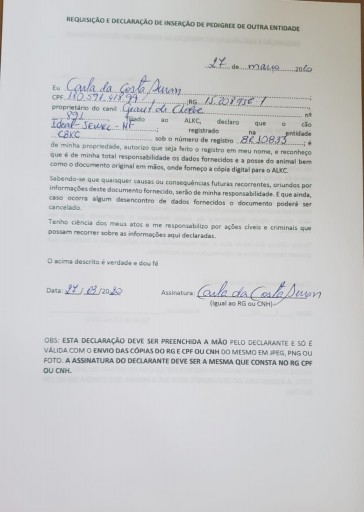 REQUISIÇÃO E DECLARAÇÃO DE INSERÇÃO DE PEDIGREE DE OUTRA ENTIDADE
27 de março 2020
Eu Carla da Costa
CPF. RG.
proprietário do canil nº
891 filiado ao ALKC, declaro que o cão
Ideal registrado na entidade
CBKC sob o número de registro ; é
de minha propriedade, autorizo que seja feito o registro em meu nome, e reconheço
que é de minha total responsabilidade os dados fornecidos e a posse do animal bem
como o documento original em mãos, onde forneço a cópia digital para o ALKC.
Sabendo-se que quaisquer causas ou consequências futuras recorrentes, oriundos por
informações deste documento fornecido, serão de minha responsabilidade. E que ainda,
caso ocorra algum desencontro de dados fornecidos o documento poderá ser
cancelado.
Tenho ciência dos meus atos e me responsabilizo por ações cíveis e criminais que
possam recorrer sobre as informações aqui declaradas.
O acima descrito é verdade e dou fé
Data: 27/03/2020 Assinatura: Carla da Costa
(Igual ao RG ou CNH)
OBS: ESTA DECLARAÇÃO DEVE SER PREENCHIDA A MÃO PELO DECLARANTE E SÓ É
VÁLIDA COM O ENVIO DAS CÓPIAS DO RG E CPF OU CNH DO MESMO EM JPEG, PNG OU
FOTO. A ASSINATURA DO DECLARANTE DEVE SER A MESMA QUE CONSTA NO RG CPF
OU CNH.